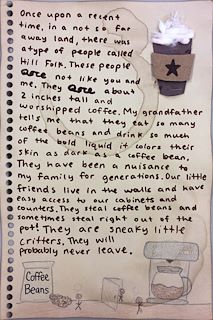 Once upon a recent
time, in a not so far
away land, there was
a type of people called
Hill Folk. These people
are not like you and
me. They are about
2 inches tall and
worshipped coffee. My grandfather
tells me that they eat so many
coffee beans and drink so much
of the bold liquid it colors their
skin as dark as a coffee bean.
They have been a nuisance to
my family for generations. Our little
friends live in the walls and have
easy access to our cabinets and
counters. They steal coffee beans and
sometimes steal right out of the
pot! They are sneaky little
critters. They will
probably never leave.
Coffee
Beans